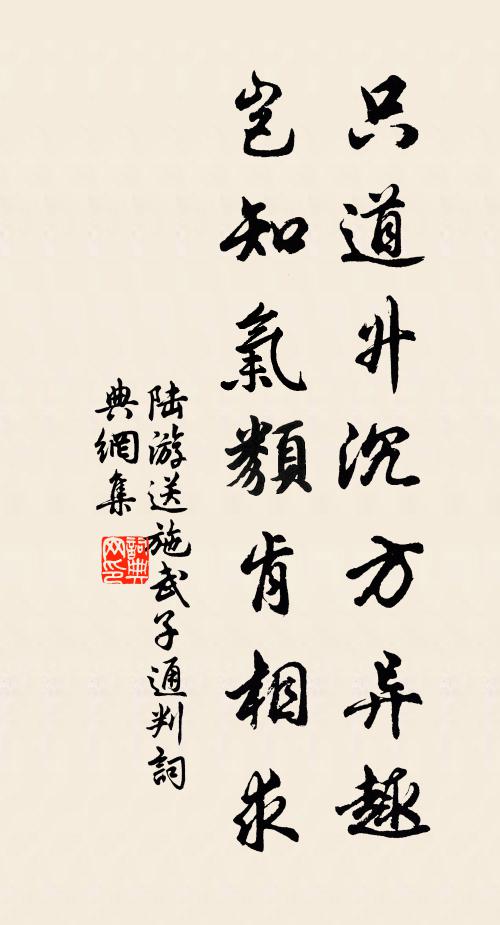 只道升沉方异趣
岂知氣類肯相求
陆游送施武子通判詞
典網集
詞典网印